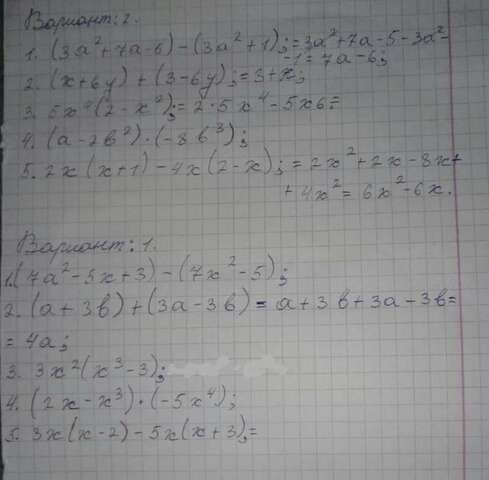 Вариант: 2.
1. (3a²+7a-6)-(3a²+1);=3a²+7a-5-3a²-
-1=7a-6;
2. (x+6y)+(3-6y);=3+x;
3. 5x⁴(2-x²);=2·5x⁴-5x6=
4. (a-2b²)·(-8b³);
5. 2x(x+1)-4x(2-x);=2x²+2x-8x+
+4x²=6x²-6x.
Вариант: 1.
1.(7a²-5x+3)-(7x²-5);
2. (a+3b)+(3a-3b)=a+3b+3a-3b=
=4a;
3. 3x²(x³-3);
4. (2x-x³)·(-5x⁴);
5. 3x(x-2)-5x(x+3);=